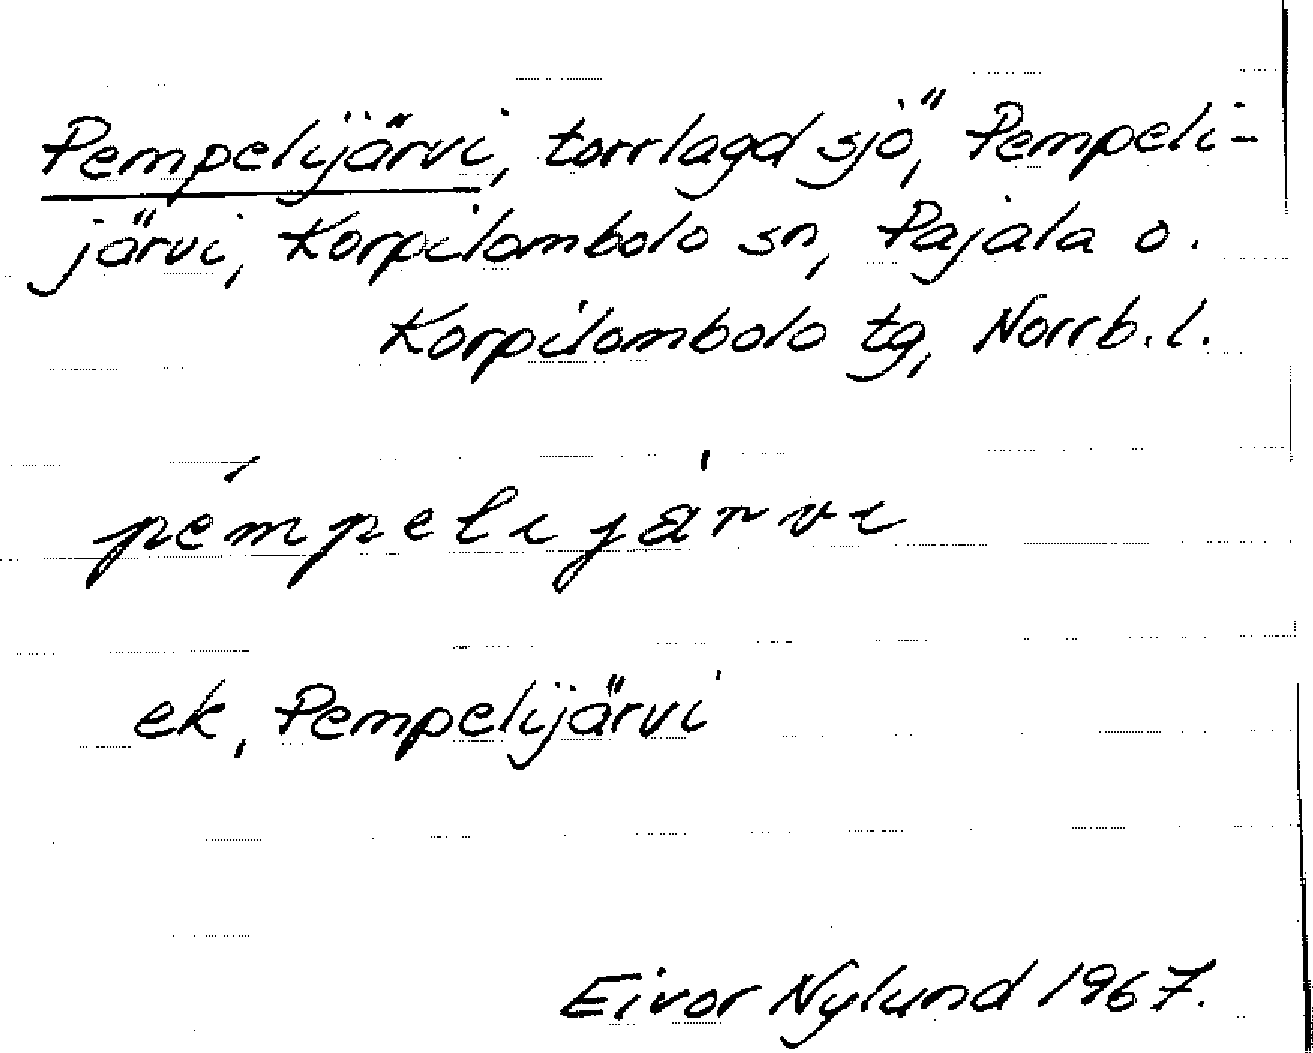 Pempelijärvi, torrlagd sjö, Pempeli-
järvi, Korpilombolo sn, Pajala o.
Korpilombolo tg, Norrb. l.
pémpelijä̀rvi
ek, Pempelijärvi
Eivor Nylund 1967.